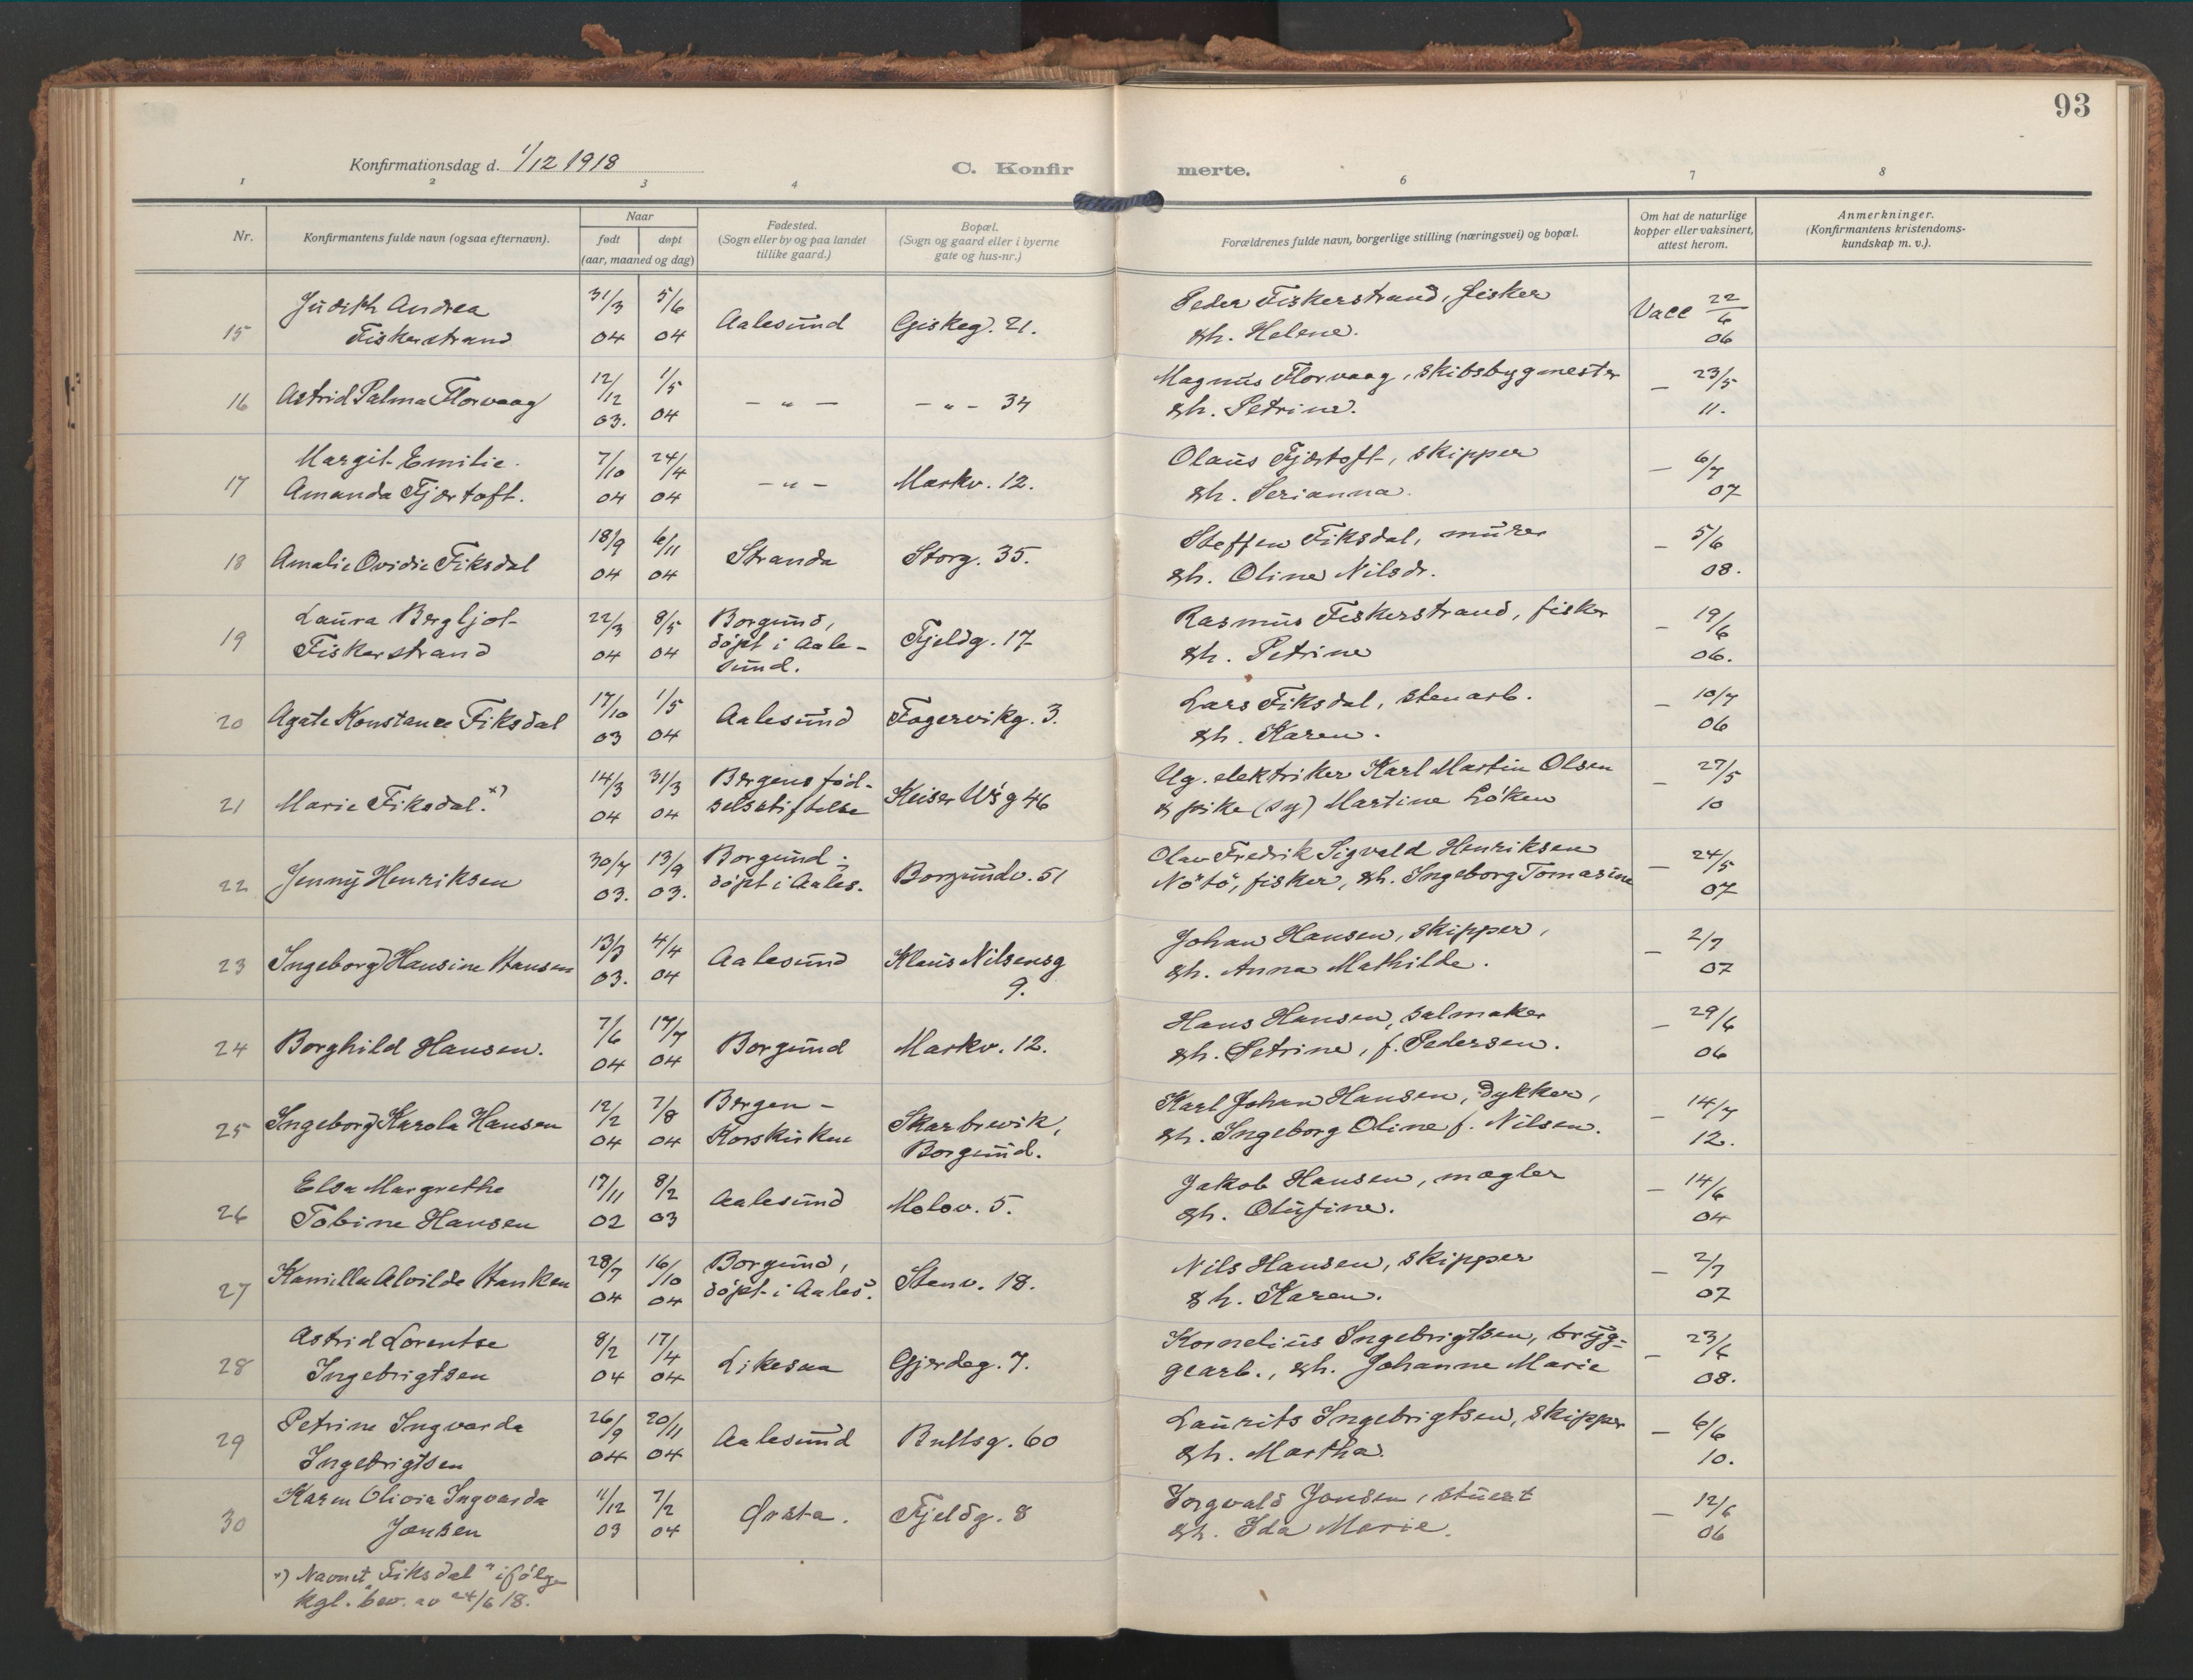 93
Konfirmationsdag d. 1/12 1918
C. Konfir merte.
1 2 3 4 6 7 8
Nr.
Konfirmantens fulde navn (ogsaa efternavn).
Naar
født døpt
(aar, maaned og dag)
Fødested.
(Sogn eller by og paa landet
tillike gaard.)
Bopæl.
(Sogn og gaard eller i byerne
gate og hus-nr.)
Forældrenes fulde navn, borgerlige stilling (næringsvei) og bopæl.
Om hat de naturlige
kopper eller vaksinert,
attest herom.
Anmerkninger.
(Konfirmantens kristendoms-
kundskap m. v.).
Judith Andrea 31/3 5/6 Peder Fiskerstrand, fisker Vacc 22/6
15 Fiskerstrand 04 04 Aalesund Giskeg. 21. &h. Helene. 06
12/12 1/5 Magnus Florvaag, skibsbygmester — 23/5
16 Astrid Palma Florvaag 03. 04 — " — — " — 34 &h. Petrine. 11.
Margit Emilie 7/10 24/4 Olaus Fjørtoft, skipper — 6/7
17 Amanda Fjørtoft. 04 04 — " — Markv. 12. &h. Serianna. 07
18/9 6/11 Steffen Fiksdal, murer — 5/6
18 Amalie Ovidie Fiksdal 04 04 Stranda Storg. 35. &h. Oline Nilsdr. 08.
Laura Bergljot 22/3 8/5 Borgund, Rasmus Fiskerstrand, fisker — 19/6
19 Fiskerstrand 04 04 döpt i Aale- Fjeldg. 17 &h. Petrine 06.
sund.
17/10 1/5 Lars Fiksdal, stenarb. — 10/7
20 Agate Konstance Fiksdal 03 04 Aalesund Fagervikg. 3. &h. Karen. 06
14/3 31/3 Bergens fød- Ug. elektriker Karl Martin Olsen — 27/5
21 Marie Fiksdal. x) 04 04 selsstiftelse Keiser W's g 46 & pike (sy) Martine Löken 10
30/7 13/9 Borgund; Olav Fredrik Sigvald Henriksen — 24/5
22 Jenny Henriksen 03. 03. döpt i Aales. Borgundv. 51 Nötö, fisker, &h. Ingeborg Tomasine 07
13/3 4/4 Johan Hansen, skipper, — 2/7
23 Ingeborg Hansine Hansen 03. 04 Aalesund Klaus Nilsensg &h. Anna Mathilde. 07
9.
7/6 17/7 Hans Hansen, salmaker — 29/6
24 Borghild Hansen. 04 04 Borgund Markv. 12. &h. Petrine, f. Pedersen. 06
12/2 7/8 Bergen - Karl Johan Hansen, dykker, — 14/7
25 Ingeborg Karola Hansen 04 04 Korskirken Skarbrevik, &h. Ingeborg Oline f. Nilsen. 12.
Borgund.
Elsa Margrethe 17/11 8/2 Jakob Hansen, mægler — 14/6
26 Tobine Hansen 02 03 Aalesund Molov. 5. &h. Olufine. 04
28/7 16/10 Borgund, Nils Hansen, skipper — 2/7
27 Kamilla Alvilde Hanken 04 04 döpt i Aales. Stenv. 18. &h. Karen. 07
Astrid Lorentse 8/2 17/4 Kornelius Ingebrigtsen, bryg- — 23/6
28 Ingebrigtsen 04 04 Likesaa Gjerdeg. 7. gearb., &h. Johanne Marie 08.
Petrine Ingvarda 26/9 20/11 Laurits Ingebrigtsen, skipper — 6/6
29 Ingebrigtsen 04 04 Aalesund Bullsg. 60 &h. Martha. 10.
Karen Olivia Ingvarda 11/12 7/2 Torgvald Jensen, stuert — 12/6
30 Jensen 03 04 Ørsta. Fjeldg. 8 &h. Ida Marie. 06
x) Navnet "Fiksdal" ifölge
kgl. bev. av 24/6 18.